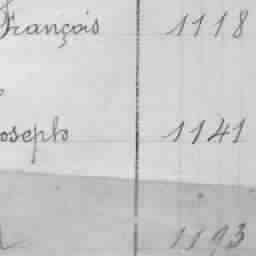 François 1118
Joseph 1141
1193